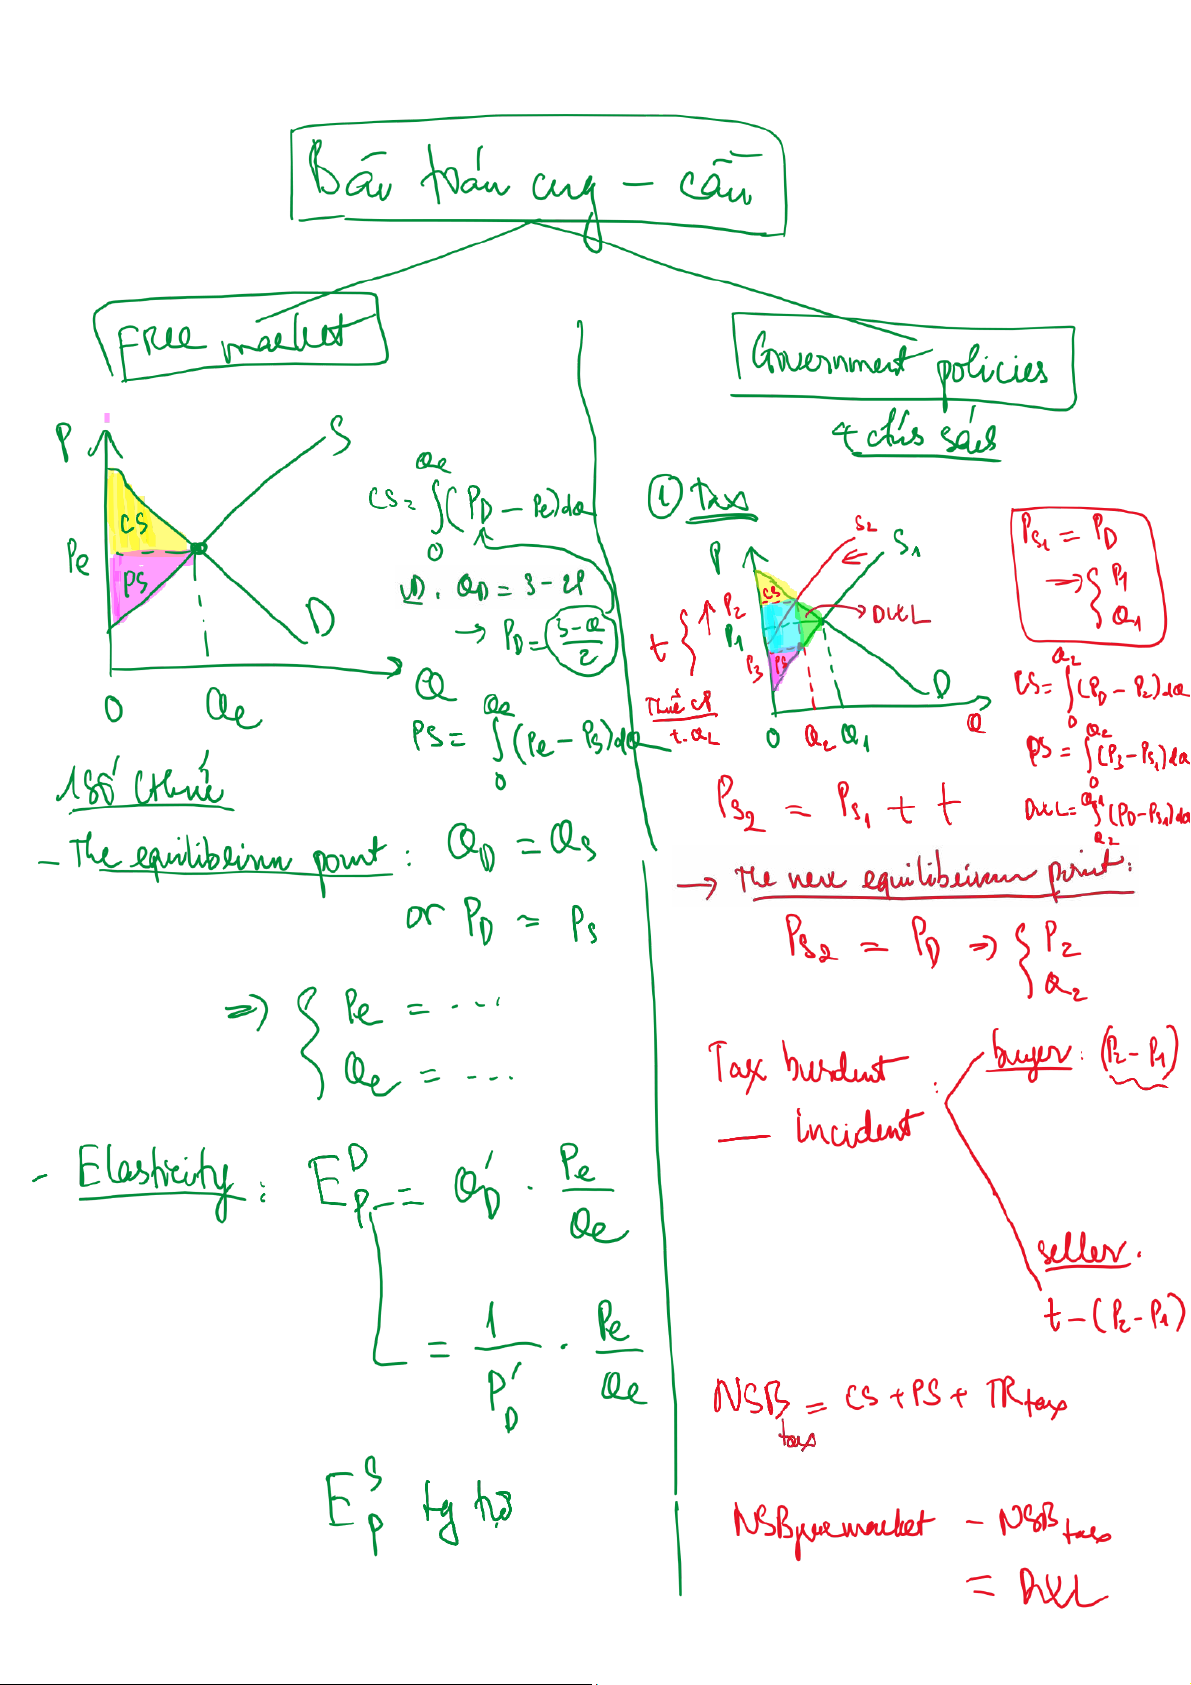 Bài toán cung – cầu
Free market
P
S
CS
Pe
PS
D
0
Qe
Q
CS = ∫₀^Qe (P_D – Pe)dQ
VD. Q_D = 3 – 2P
→ P_D = (3 – Q)/2
PS = ∫₀^Qe (Pe – Ps)dQ
1 số CThức
- The equilibrium point : Q_D = Q_S
or P_D = P_S
=> { Pe = ...
Qe = ...
- Elasticity : E_P^D = Q'_D . Pe/Qe
= 1/P'_D . Pe/Qe
E_P^S tg tự
Government policies
4 chính sách
① Tax
P
S₂
S₁
CS
P₂
P₁
P₃
PS
DWL
t {
Thuế CP
t.Q₂
D
0
Q₂
Q₁
Q
P_S₁ = P_D
=> { P₁
Q₁
CS = ∫₀^Q₂ (P_D – P₂)dQ
PS = ∫₀^Q₂ (P₃ – P_S₁)dQ
DWL = ∫_Q₂^Q₁ (P_D – P_S₁)dQ
P_S₂ = P_S₁ + t
→ The new equilibrium point :
P_S₂ = P_D => { P₂
Q₂
Tax burdent :
— incident
buyer : (P₂ – P₁)
seller :
t – (P₂ – P₁)
NSB_tax = CS + PS + TR_tax
NSB_free market – NSB_tax
= DWL